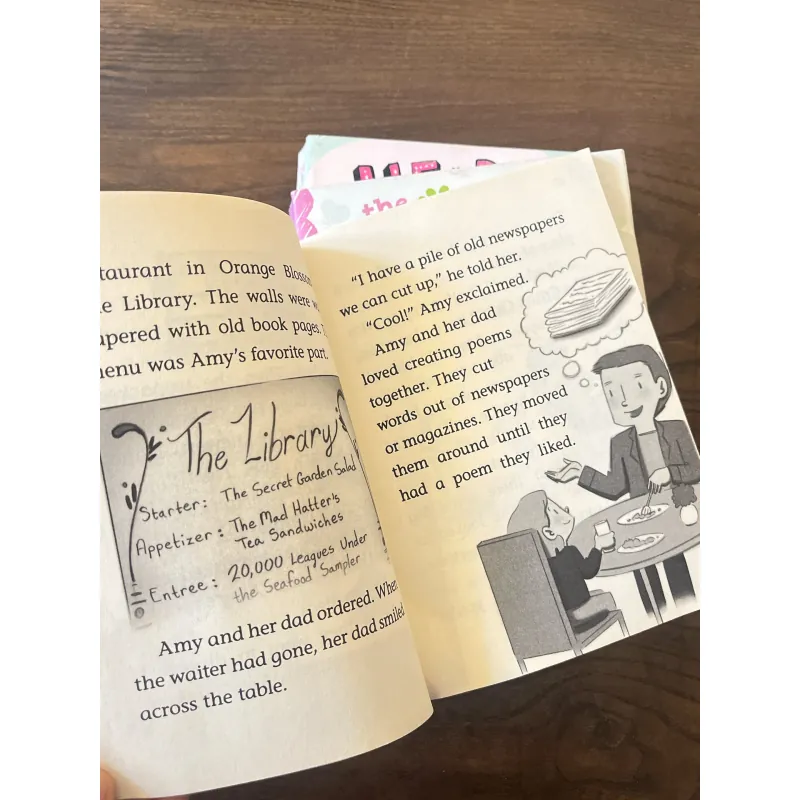 the
taurant in Orange Bloss
Library. The walls were
apered with old book pages.
menu was Amy's favorite part.
The Library
Starter: The Secret Garden Salad
Appetizer: The Mad Hatter's
Tea Sandwiches
Entree: 20,000 Leagues Under
the Seafood Sampler
Amy and her dad ordered. When
the waiter had gone, her dad smiled
across the table.
"I have a pile of old newspapers
we can cut up," he told her.
"Cool!" Amy exclaimed.
Amy and her dad
loved creating poems
together. They cut
words out of newspapers
or magazines. They moved
them around until they
had a poem they liked.